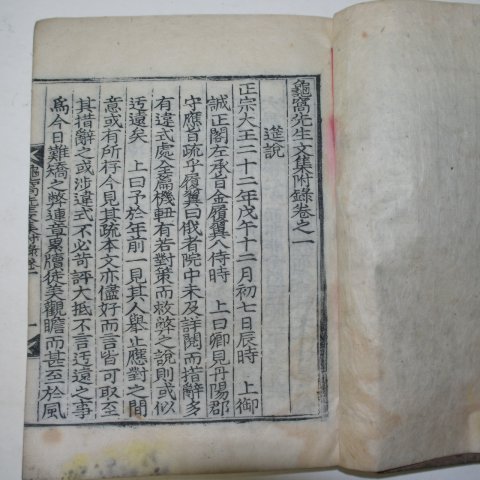 龜窩先生文集附錄卷之一
筵說
正宗大王二十二年戊午十二月初七日辰時 上御
誠正閣左承旨金履翼入侍時 上曰卿見丹陽郡
守應旨疏乎履翼曰俄者院中未及詳閱而措辭多
有違式處全篇機軸有若對策而救弊之說則或似
迂遠矣 上曰予於年前一見其人舉止應對之間
意或有所存今見其疏本文亦儘好而言皆可取至
其措辭之或涉違式不必苛評大抵不言迂遠之事
爲今日難矯之弊連章累牘徒美觀瞻而甚至於風
龜窩先生文集附錄卷一